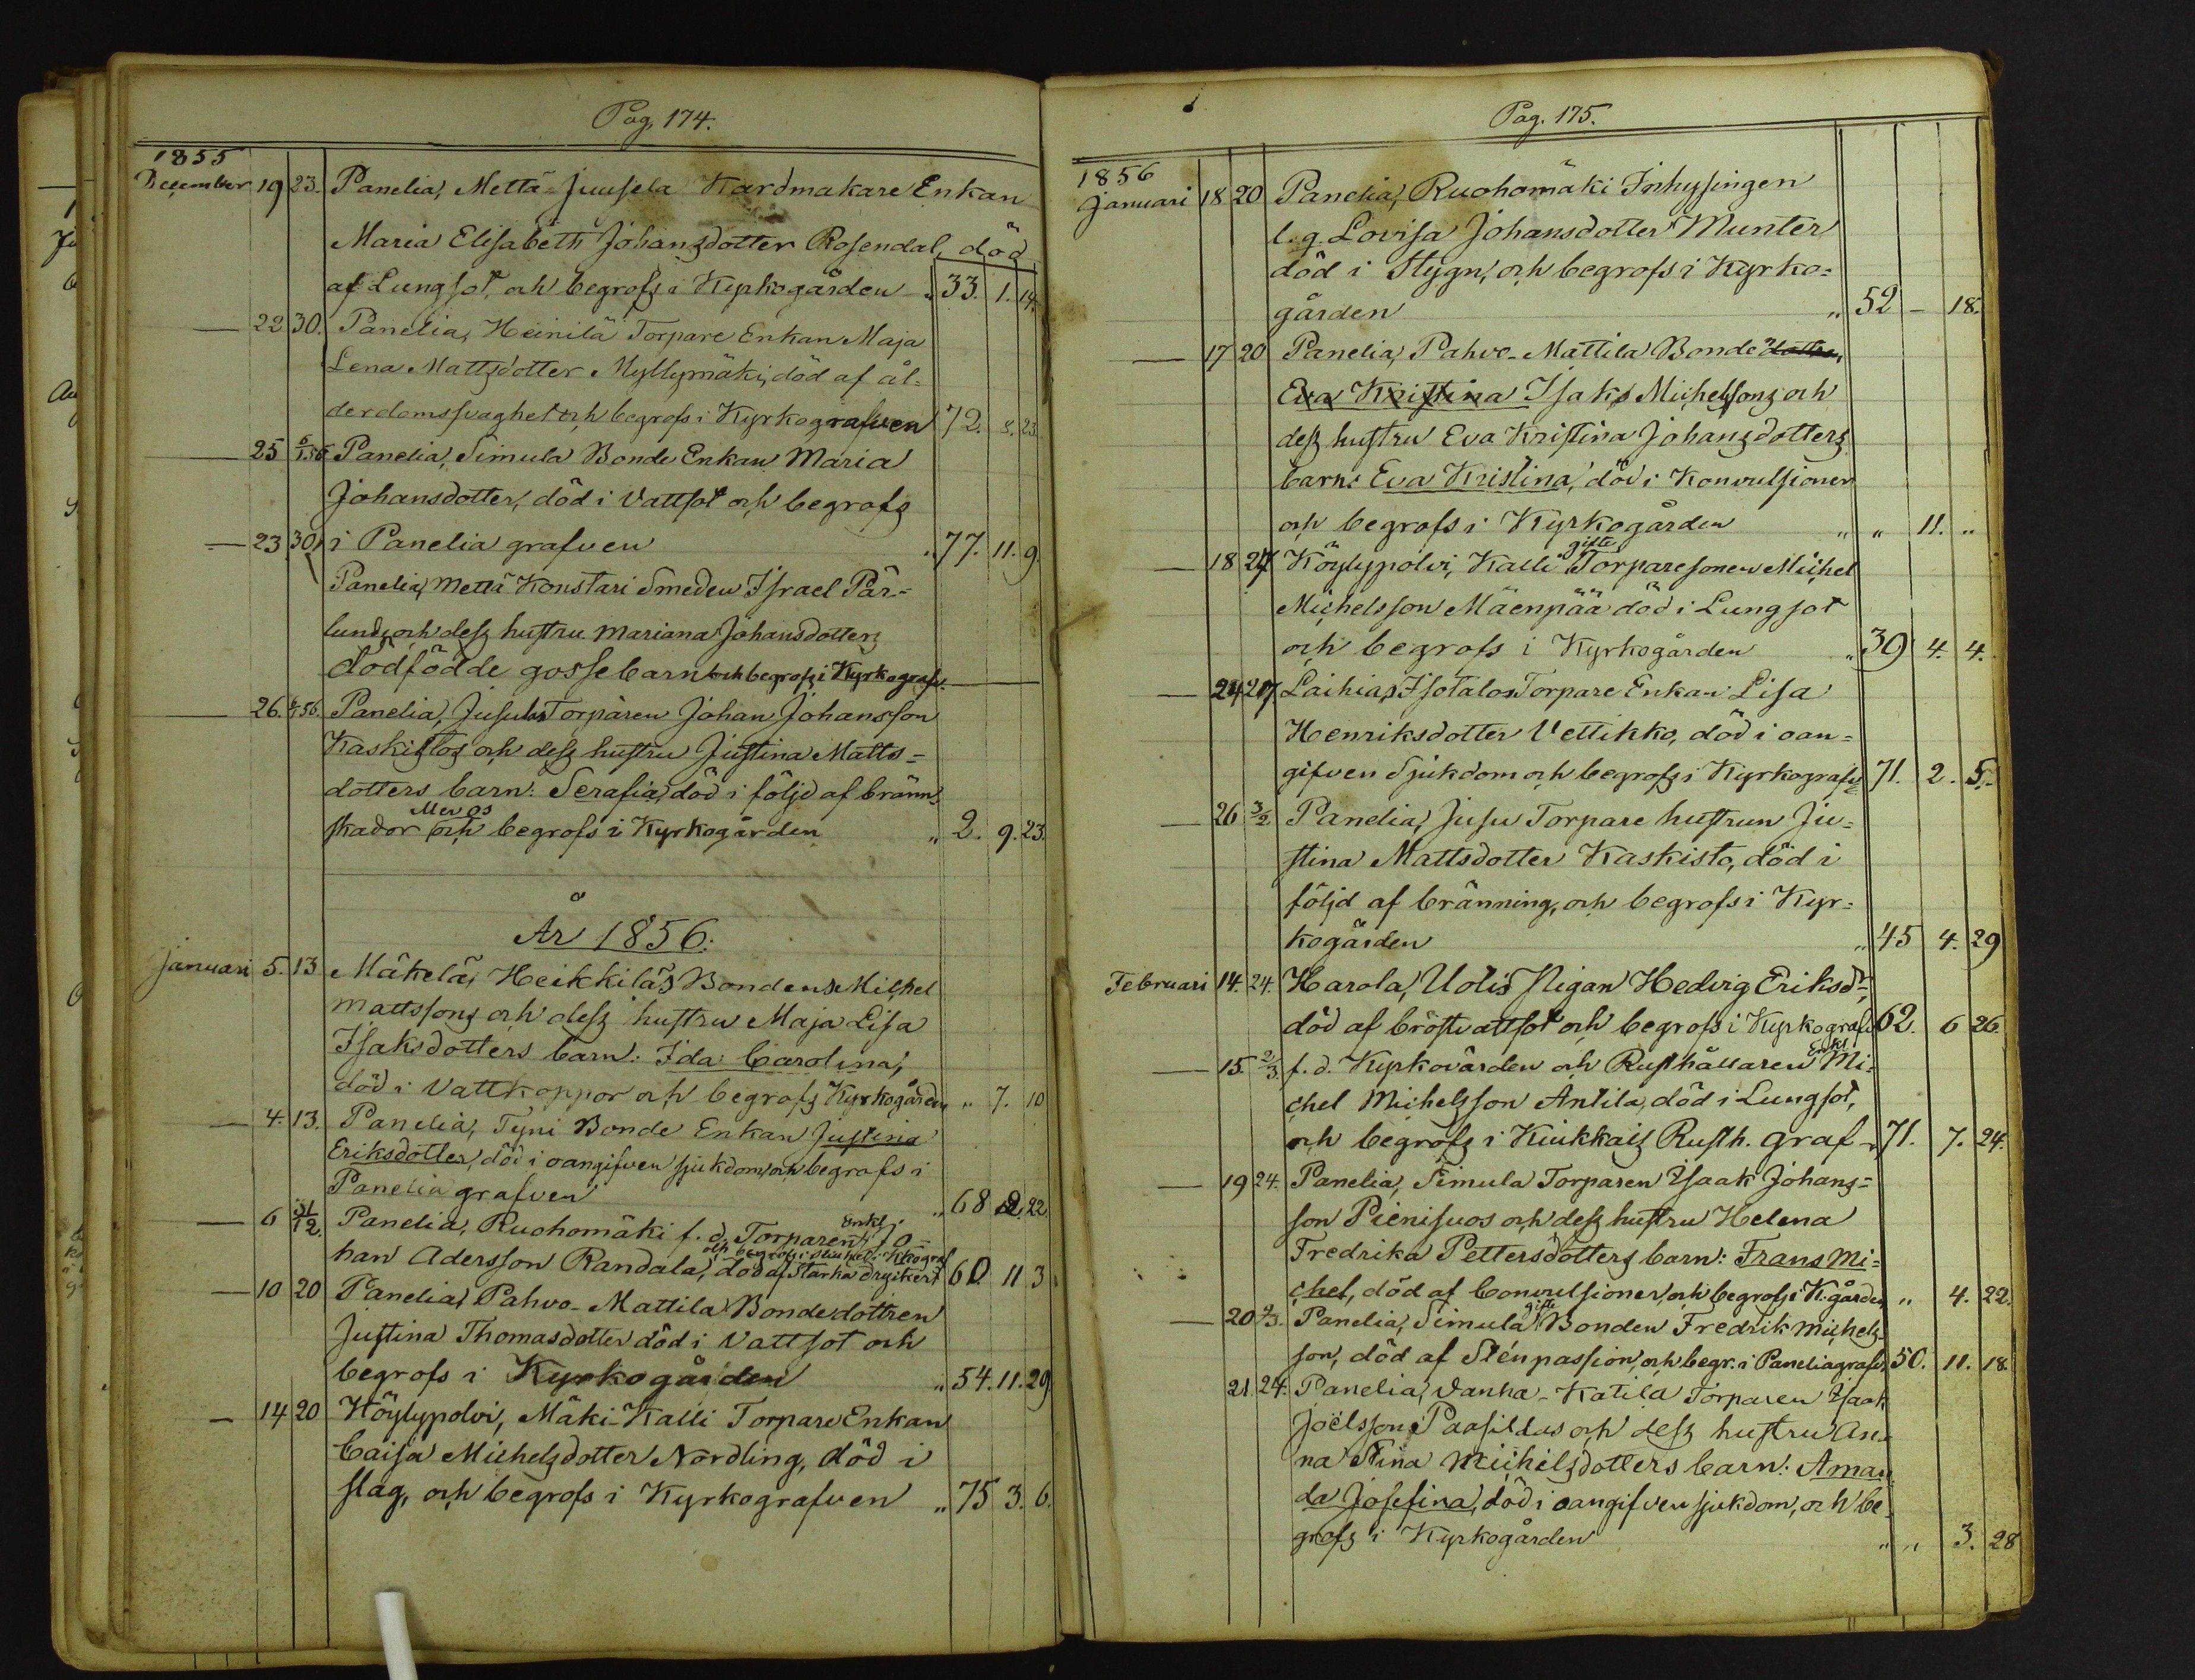 Pag. 174.
1855
December 19 23. Panelia, Mettä-Juusela Kardmakare Enkan
Maria Elisabeth Johansdotter Rosendal, död
af Lungsot, och begrofs i Kyrkogården " 33. 1. 14.
— 22 30. Panelia, Heinilä Torpare Enkan Maja
Lena Mattsdotter Myllymäki, död af ål=
derdomssvaghet och begrofs i Kyrkografven 72. 8. 23.
— 25 6/1.56 Panelia, Simula Bonde Enkan Maria
Johansdotter, död i Vattsot och begrofs
— 23 30. i Panelia grafven " 77. 11. 9.
Panelia, Mettä Konstari Smeden Israel Pär=
lunds och dess hustru Mariana Johansdotters
dödfödde gossebarn och begrofs i Kyrkografv.
— 26. 6/1 56. Panelia, Jusulas Torparen Johan Johansson
Kaskistos och dess hustru Justina Matts=
dotters barn: Serafia, död i följd af bränn=
skador och begrofs i Kyrkogården " 2. 9. 23.
År 1856.
Januari 5. 13 Mäkelä, Heikkiläs Bondens Michel
Mattssons och dess hustru Maja Lisa
Isaksdotters barn: Ida Carolina,
död i Vattkoppor och begrofs Kyrkogården " 7. 10
— 4. 13. Panelia, Tyni Bonde Enkan Justina
Eriksdotter, död i oangifven sjukdom, och begrafs i
Panelia grafven " 68 2. 22
— 6 31/12. Panelia, Ruohomäki f. d. Torparen Enkl. Jo=
han Adersson Randala, död af starka dryckers 60 11 3
— 10 20 Panelia, Pahvo-Mattila Bondedottren
Justina Thomasdotter död i Vattsot och
begrofs i Kyrkogården " 54. 11. 29
— 14 20 Höylypolvi, Mäki-Kalli Torpare Enkan
Caisa Michelsdotter Nordling, död i
slag, och begrofs i Kyrkografven " 75 3. 6.
Pag. 175.
1856
Januari 18 20 Panelia, Ruohomäki Inhysingen
l. q. Lovisa Johansdotter Munter
död i Stygn, och begrofs i Kyrko=
gården " 52 — 18.
— 17 20 Panelia, Pahvo-Mattila Bonde dottren,
Eva Kristina Isaks Michelssons och
dess hustru Eva Kristina Johansdotters
barn: Eva Kristina, död i Konvulsioner
och begrofs i Kyrkogården " " 11. "
gifte
— 18 27 Köylypolvi, Kalli Torparesonen Michel
Michelsson Mäenpää död i Lungsot
och begrofs i Kyrkogården " 39 4. 4.
— 24 27. Laihia, Isotalos Torpare Enkan Lisa
Henriksdotter Vettikko, död i oan=
gifven Sjukdom och begrofs i Kyrkografv 71. 2. 5.
— 26 3/2 Panelia, Jusu Torpare hustrun Ju=
stina Mattsdotter Kaskisto, död i
följd af bränning, och begrofs i Kyr=
kogården " 45 4. 29
Februari 14. 24. Harola, Uolis Pigan Hedvig Eriksdr,
död af bröstvattsot och begrofs i Kyrkografv 62. 6 26.
Enkl.
— 15. 2/3. f. d. Kyrkovärden och Rusthållaren Mi=
chel Michelsson Antila, död i Lungsot,
och begrofs i Kuikkais Rusth. graf " 71. 7. 24.
— 19 24. Panelia, Simula Torparen Isaak Johans=
son Pienisuos och dess hustru Helena
Fredrika Pettersdotters barn: Frans Mi=
chel, död af Convulsioner, och begrofs i K. gården " 4. 22.
gifte
— 20 2/3. Panelia, Simula Bonden Fredrik Michels=
son, död af Sténpassion, och begr. i Paneliagrafv. 50. 11. 18.
21. 24. Panelia, Vanha-Katila Torparen Isaak
Joëlsson Paasildas och dess hustru An=
na Stina Michelsdotters barn: Aman
da Josefina, död i oangifven sjukdom, och be
grofs i Kyrkogården " " 3. 28